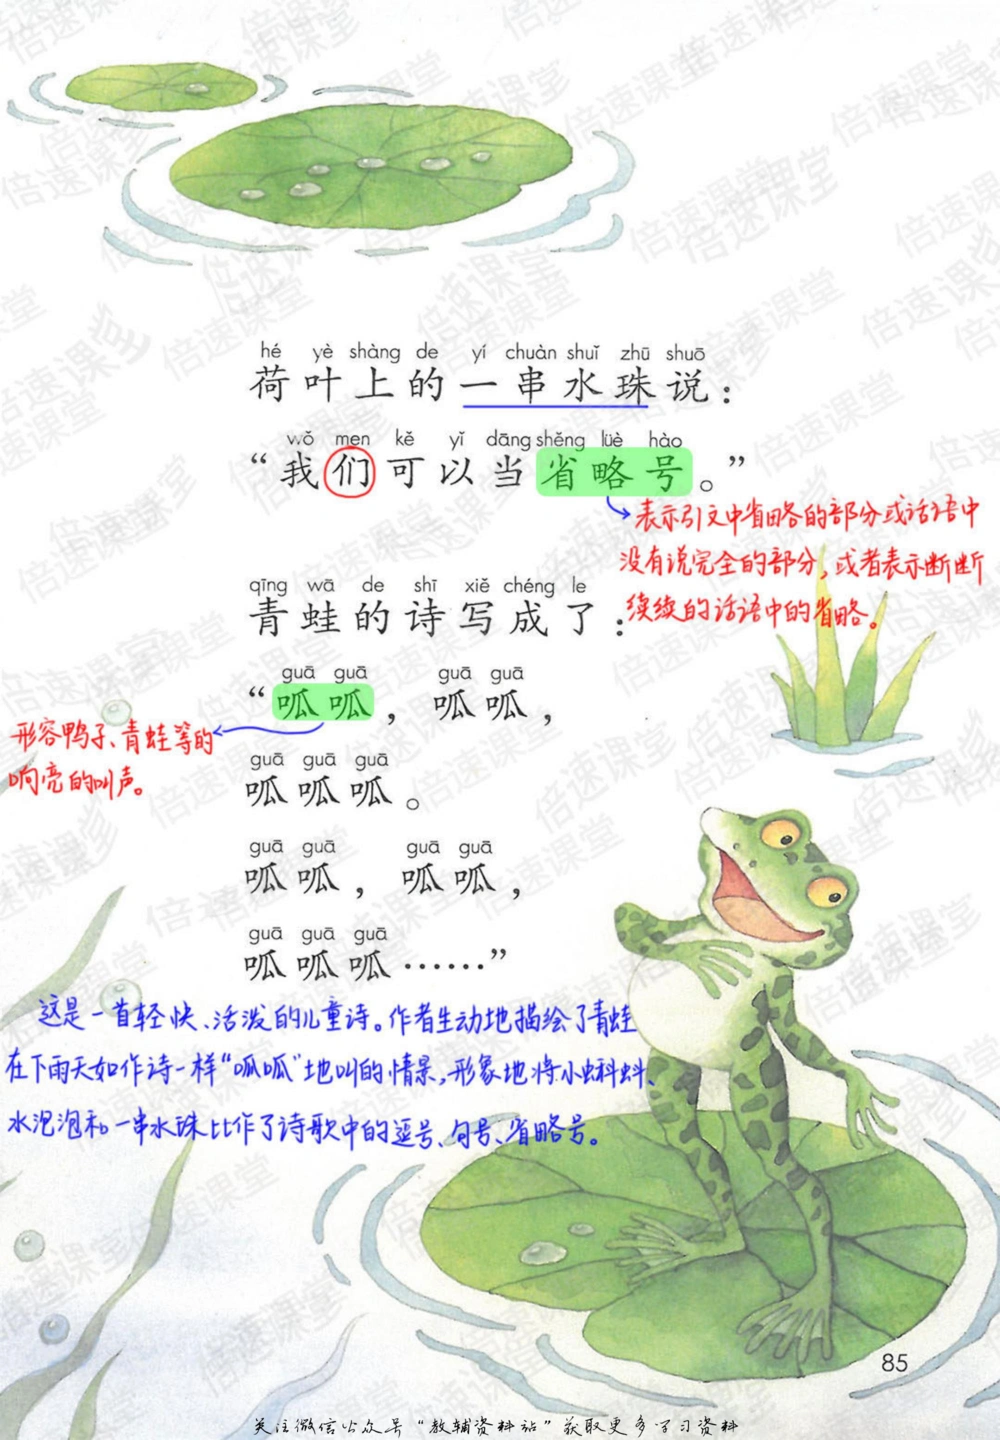 hé yè shàng de yí chuàn shuǐ zhū shuō
荷叶上的一串水珠说：
wǒ men kě yǐ dāng shěng lüè hào
“我们可以当省略号。”
表示引文中省略的部分或话语中
没有说完全的部分，或者表示断断
续续的话语中的省略。
qīng wā de shī xiě chéng le
青蛙的诗写成了：
guā guā guā guā
“呱呱，呱呱，
形容鸭子、青蛙等的
响亮的叫声。
guā guā guā
呱呱呱。
guā guā guā guā
呱呱，呱呱，
guā guā guā
呱呱呱……”
这是一首轻快、活泼的儿童诗。作者生动地描绘了青蛙
在下雨天如作诗一样“呱呱”地叫的情景，形象地将小蝌蚪、
水泡泡和一串水珠比作了诗歌中的逗号、句号、省略号。
85
关注微信公众号“教辅资料站”获取更多学习资料
倍速课堂